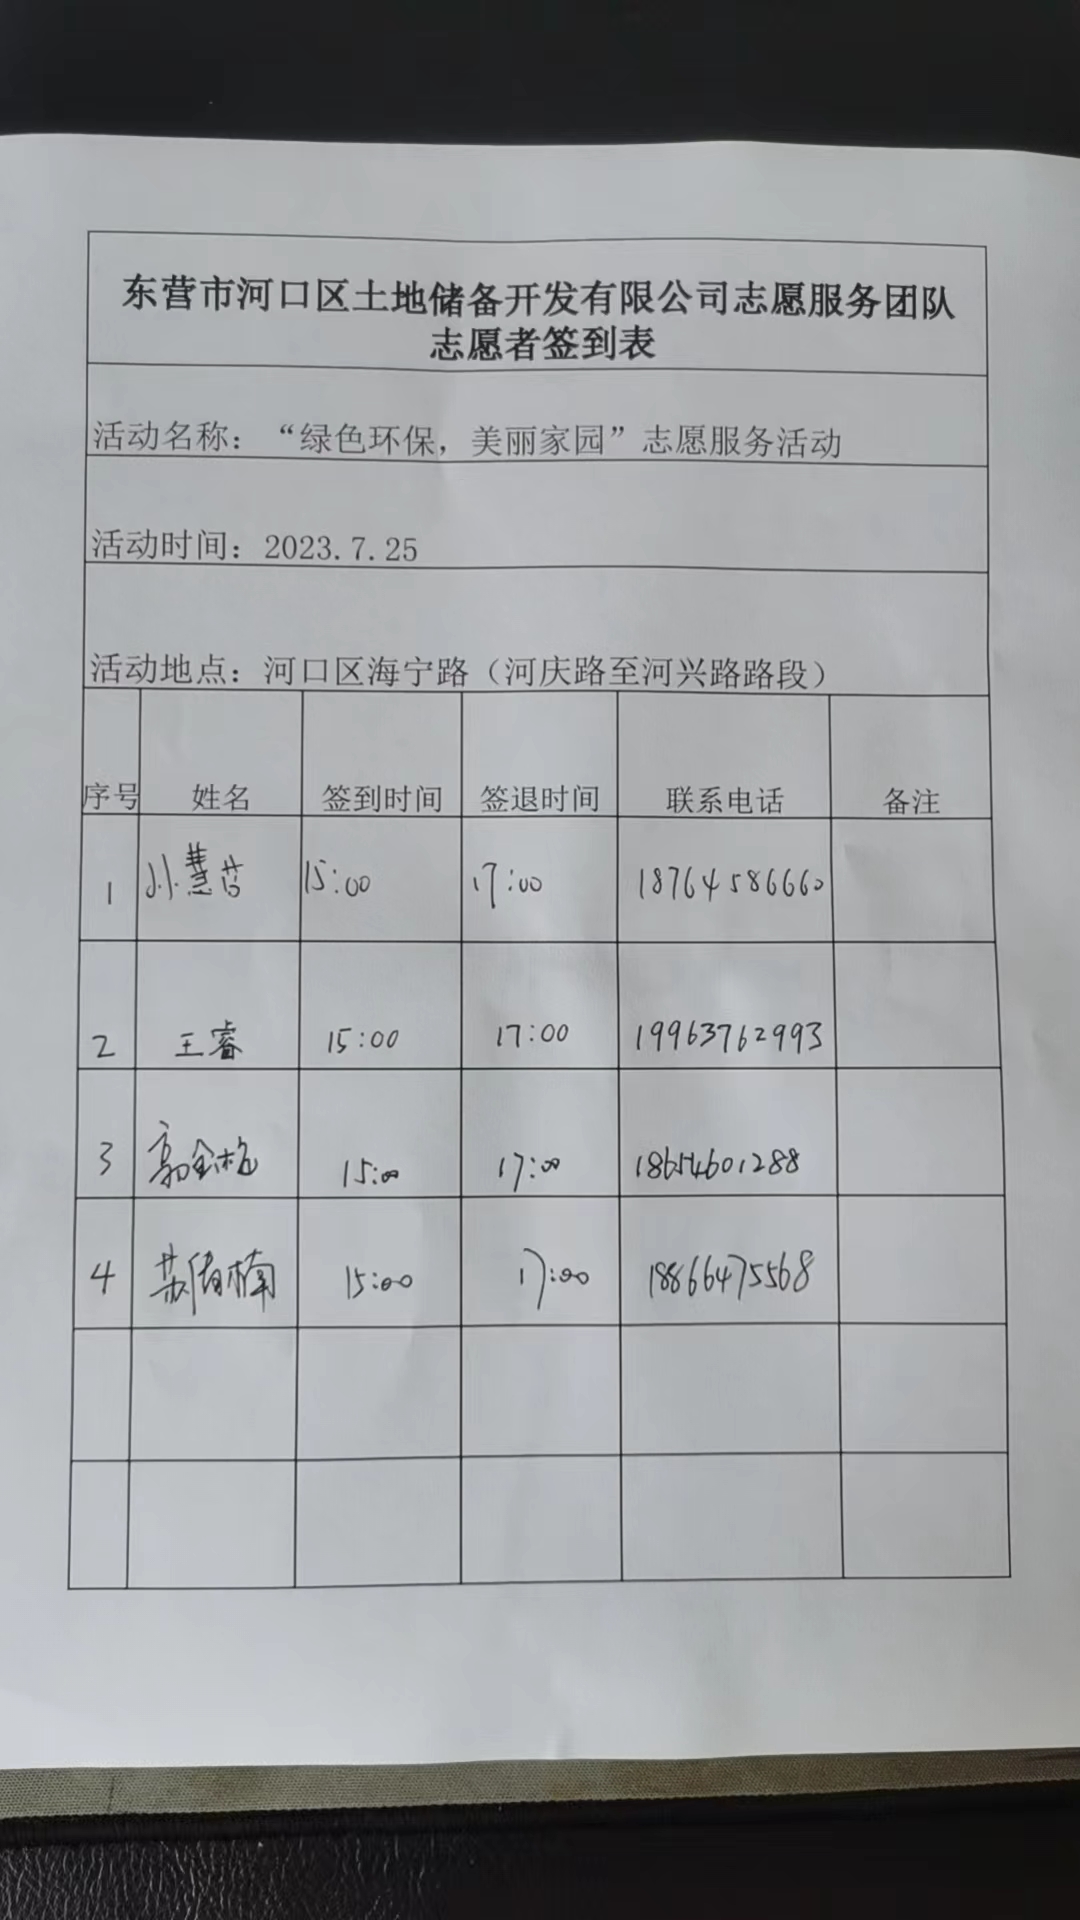 东营市河口区土地储备开发有限公司志愿服务团队
志愿者签到表
活动名称：“绿色环保，美丽家园”志愿服务活动
活动时间：2023.7.25
活动地点：河口区海宁路（河庆路至河兴路路段）
序号 姓名 签到时间 签退时间 联系电话 备注
1 15:00 17:00 18764586660
2 王睿 15:00 17:00 19963762993
3 郭金 15:00 17:00 18654601288
4 苏倩楠 15:00 17:00 18866475568